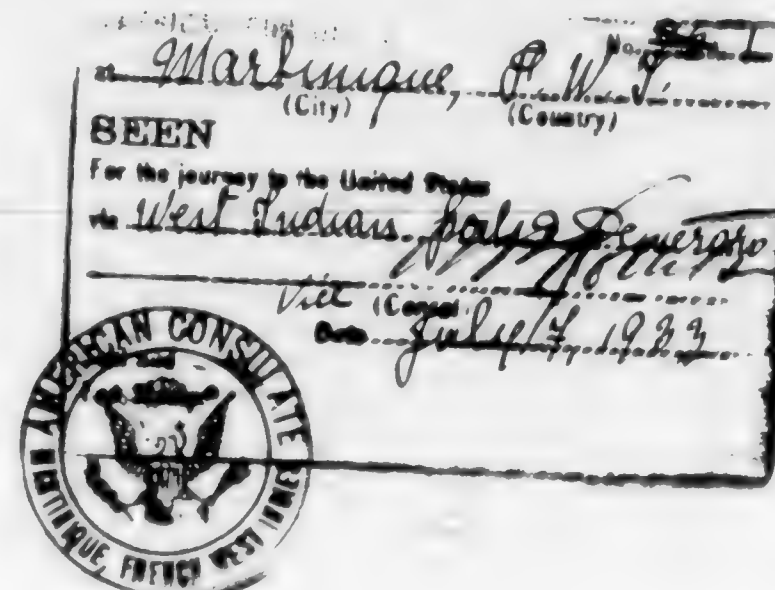 No.
at Martinique, F. W. I.
(City) (Country)
SEEN
For the journey to the United States
via West Indian Ports & Demerara
Vice (Consul)
Date July 17, 1933
AMERICAN CONSULATE
MARTINIQUE, FRENCH WEST INDIES